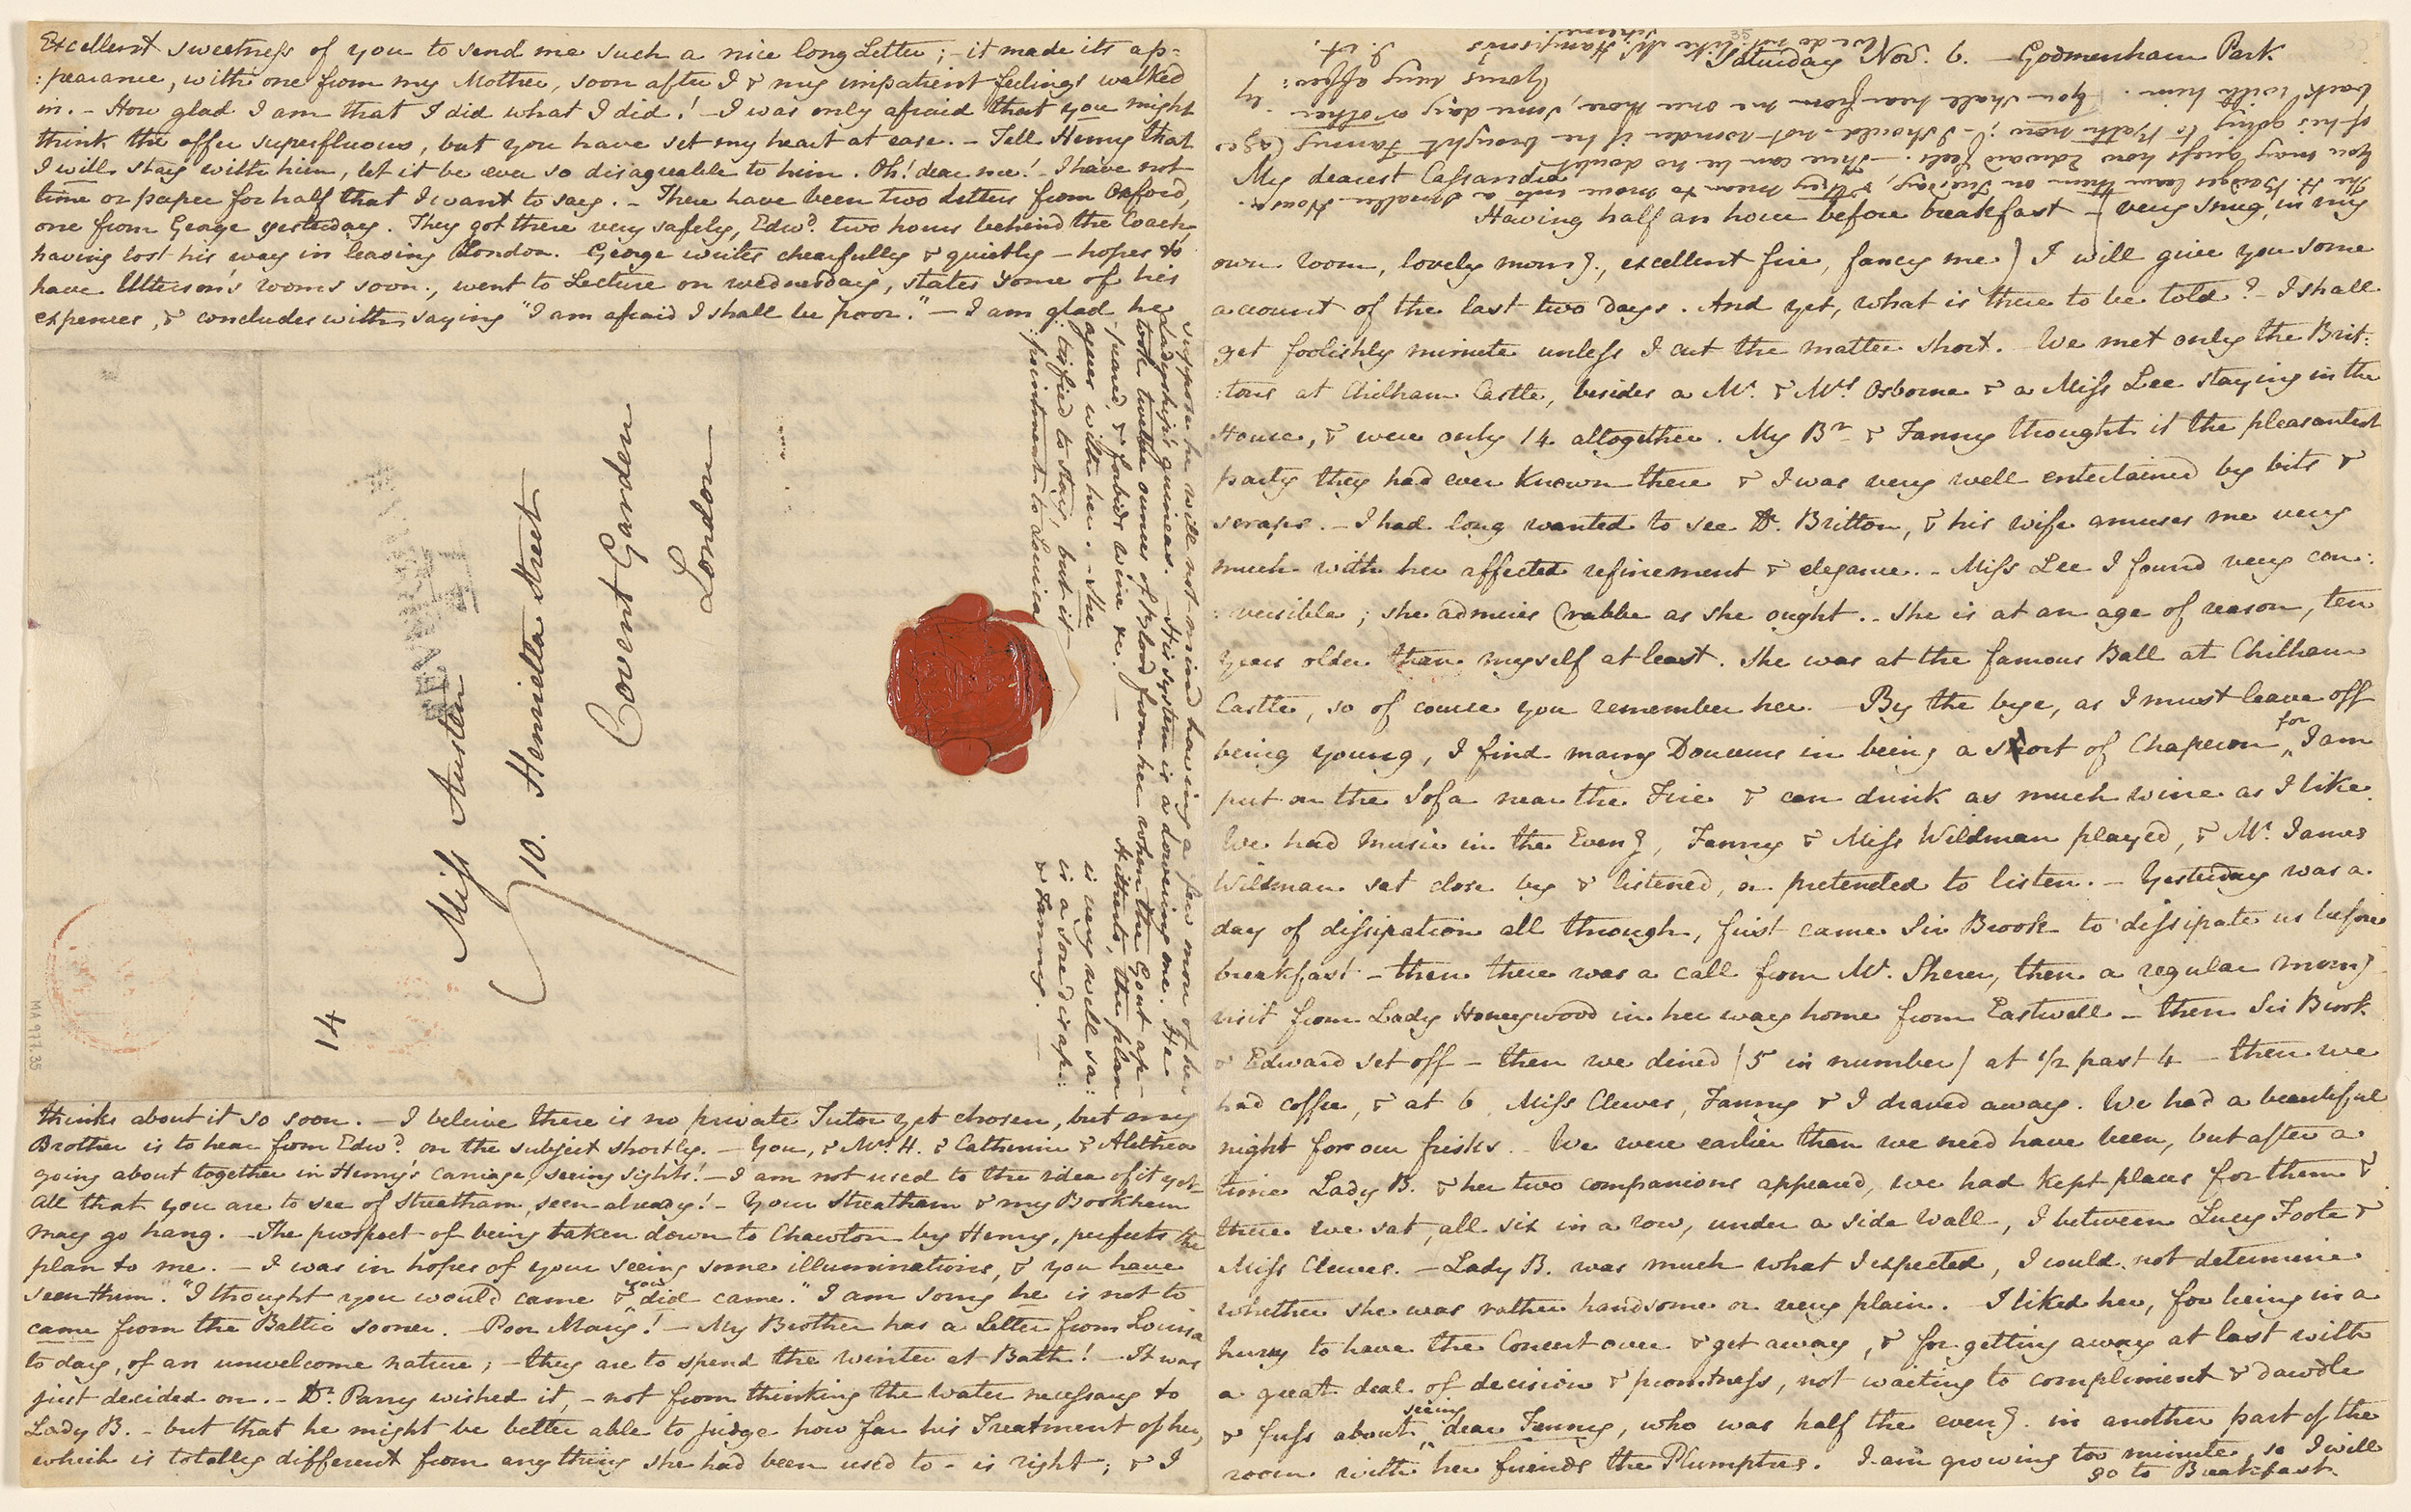 Excellent sweetness of you to send me such a nice long Letter; - it made its ap=
:pearance, with one from my Mother, soon after I & my impatient feelings walked
in. - How glad I am that I did what I did! - I was only afraid that you might
think the offer superfluous, but you have set my heart at ease. - Tell Henry that
I will stay with him, let it be ever so disagreable to him. Oh! dear me! - I have not
time or paper for half that I want to say. - There have been two Letters from Oxford,
one from George yesterday. They got there very safely, Edwd. two hours behind the Coach,
having lost his way in leaving London. George writes chearfully & quietly - hopes to
have Utterson's rooms soon, went to Lecture on wednesday, states some of his
expences, & concludes with saying "I am afraid I shall be poor." - I am glad he
thinks about it so soon. - I beleive there is no private Tutor yet chosen, but my
Brother is to hear from Edwd. on the subject shortly. - You, & Mrs. H. & Catherine & Alethea
going about together in Henry's carriage, seeing sights! - I am not used to the idea of it yet -
All that you are to see of Streatham, seen already! - Your Streatham & my Bookham
may go hang. - The prospect of being taken down to Chawton by Henry, perfects the
plan to me. - I was in hopes of your seeing some illuminations, & you have
seen them. "I thought you would came & you did came." I am sorry he is not to
came from the Baltic sooner. - Poor Mary! - My Brother has a Letter from Louisa
today, of an unwelcome nature; - they are to spend the winter at Bath! - It was
just decided on. - Dr. Parry wished it, - not from thinking the Water necessary to
Lady B. - but that he might be better able to judge how far his Treatment of her,
which is totally different from anything she had been used to - is right; & I
suppose he will not mind having a few more of her
Ladyship's guineas. - His system is a Lowering one. He
took twelve ounces of Blood from her when the Gout ap-
:peared, & forbids Wine &c. - Hitherto, the plan
agrees with her. - She is very well sa:
:tisfied to stay, but it is a sore disap:
:pointment to Louisa & Fanny. -
Miss Austen
10. Henrietta Street
Covent Garden
London
14
MA 977.35
Saturday Nov. 6. - Godmersham Park
My dearest Cassandra
Having half an hour before breakfast - (very snug, in my
own room, lovely morng., excellent fire, fancy me) I will give you some
account of the last two days. And yet, what is there to be told? - I shall
get foolishly minute unless I cut the matter short. - We met only the Brit:
:tons at Chilham Castle, besides a Mr. & Mrs. Osborne & a Miss Lee staying in the
House, & were only 14 altogether. My Br & Fanny thought it the pleasantest
party they had ever known there & I was very well entertained by bits &
scraps. - I had long wanted to see Dr. Britton, & his wife amuses me very
much with her affected refinement & elegance. - Miss Lee I found very con:
:versible; she admires Crabbe as she ought. - She is at an age of reason, ten
years older than myself at least. She was at the famous Ball at Chilham
Castle, so of course you remember her. - By the bye, as I must leave off
being young, I find many Douceurs in being a sort of Chaperon for I am
put on the Sofa near the Fire & can drink as much wine as I like.
We had Music in the Eveng, Fanny & Miss Wildman played, & Mr. James
Wildman sat close by & listened, or pretended to listen. - Yesterday was a
day of dissipation all through, first came Sir Brook to dissipate us before
breakfast - then there was a call from Mr. Sherer, then a regular morng
visit from Lady Honeywood in her way home from Eastwell - then Sir Brook
& Edward set off - then we dined (5 in number) at 1/2 past 4 - then we
had coffee, & at 6 Miss Clewes, Fanny & I draved away. We had a beautiful
night for our frisks. - We were earlier than we need have been, but after a
time Lady B. & her two companions appeared, we had kept places for them &
there we sat, all six in a row, under a side wall, I between Lucy Foote &
Miss Clewes. - Lady B. was much what I expected, I could not determine
whether she was rather handsome or very plain. I liked her, for being in a
hurry to have the Concert over & get away, & for getting away at last with
a great deal of decision & promtness, not waiting to compliment & dawdle
& fuss about seeing dear Fanny, who was half the eveng. in another part of the
room with her friends the Plumptres. I am growing too minute, so I will
go to Breakfast.
The H. Bridges leave them on Tuesday, & they mean to move into a smaller House. &
you may guess how Edward feels. - There can be no doubt
of his going to Bath now; - I should not wonder if he brought Fanny Cage
back with him. - You shall hear from me once more, some day or other.
Yours very affec:ly
J. A.
We do not like Mr. Hampson's
scheme.